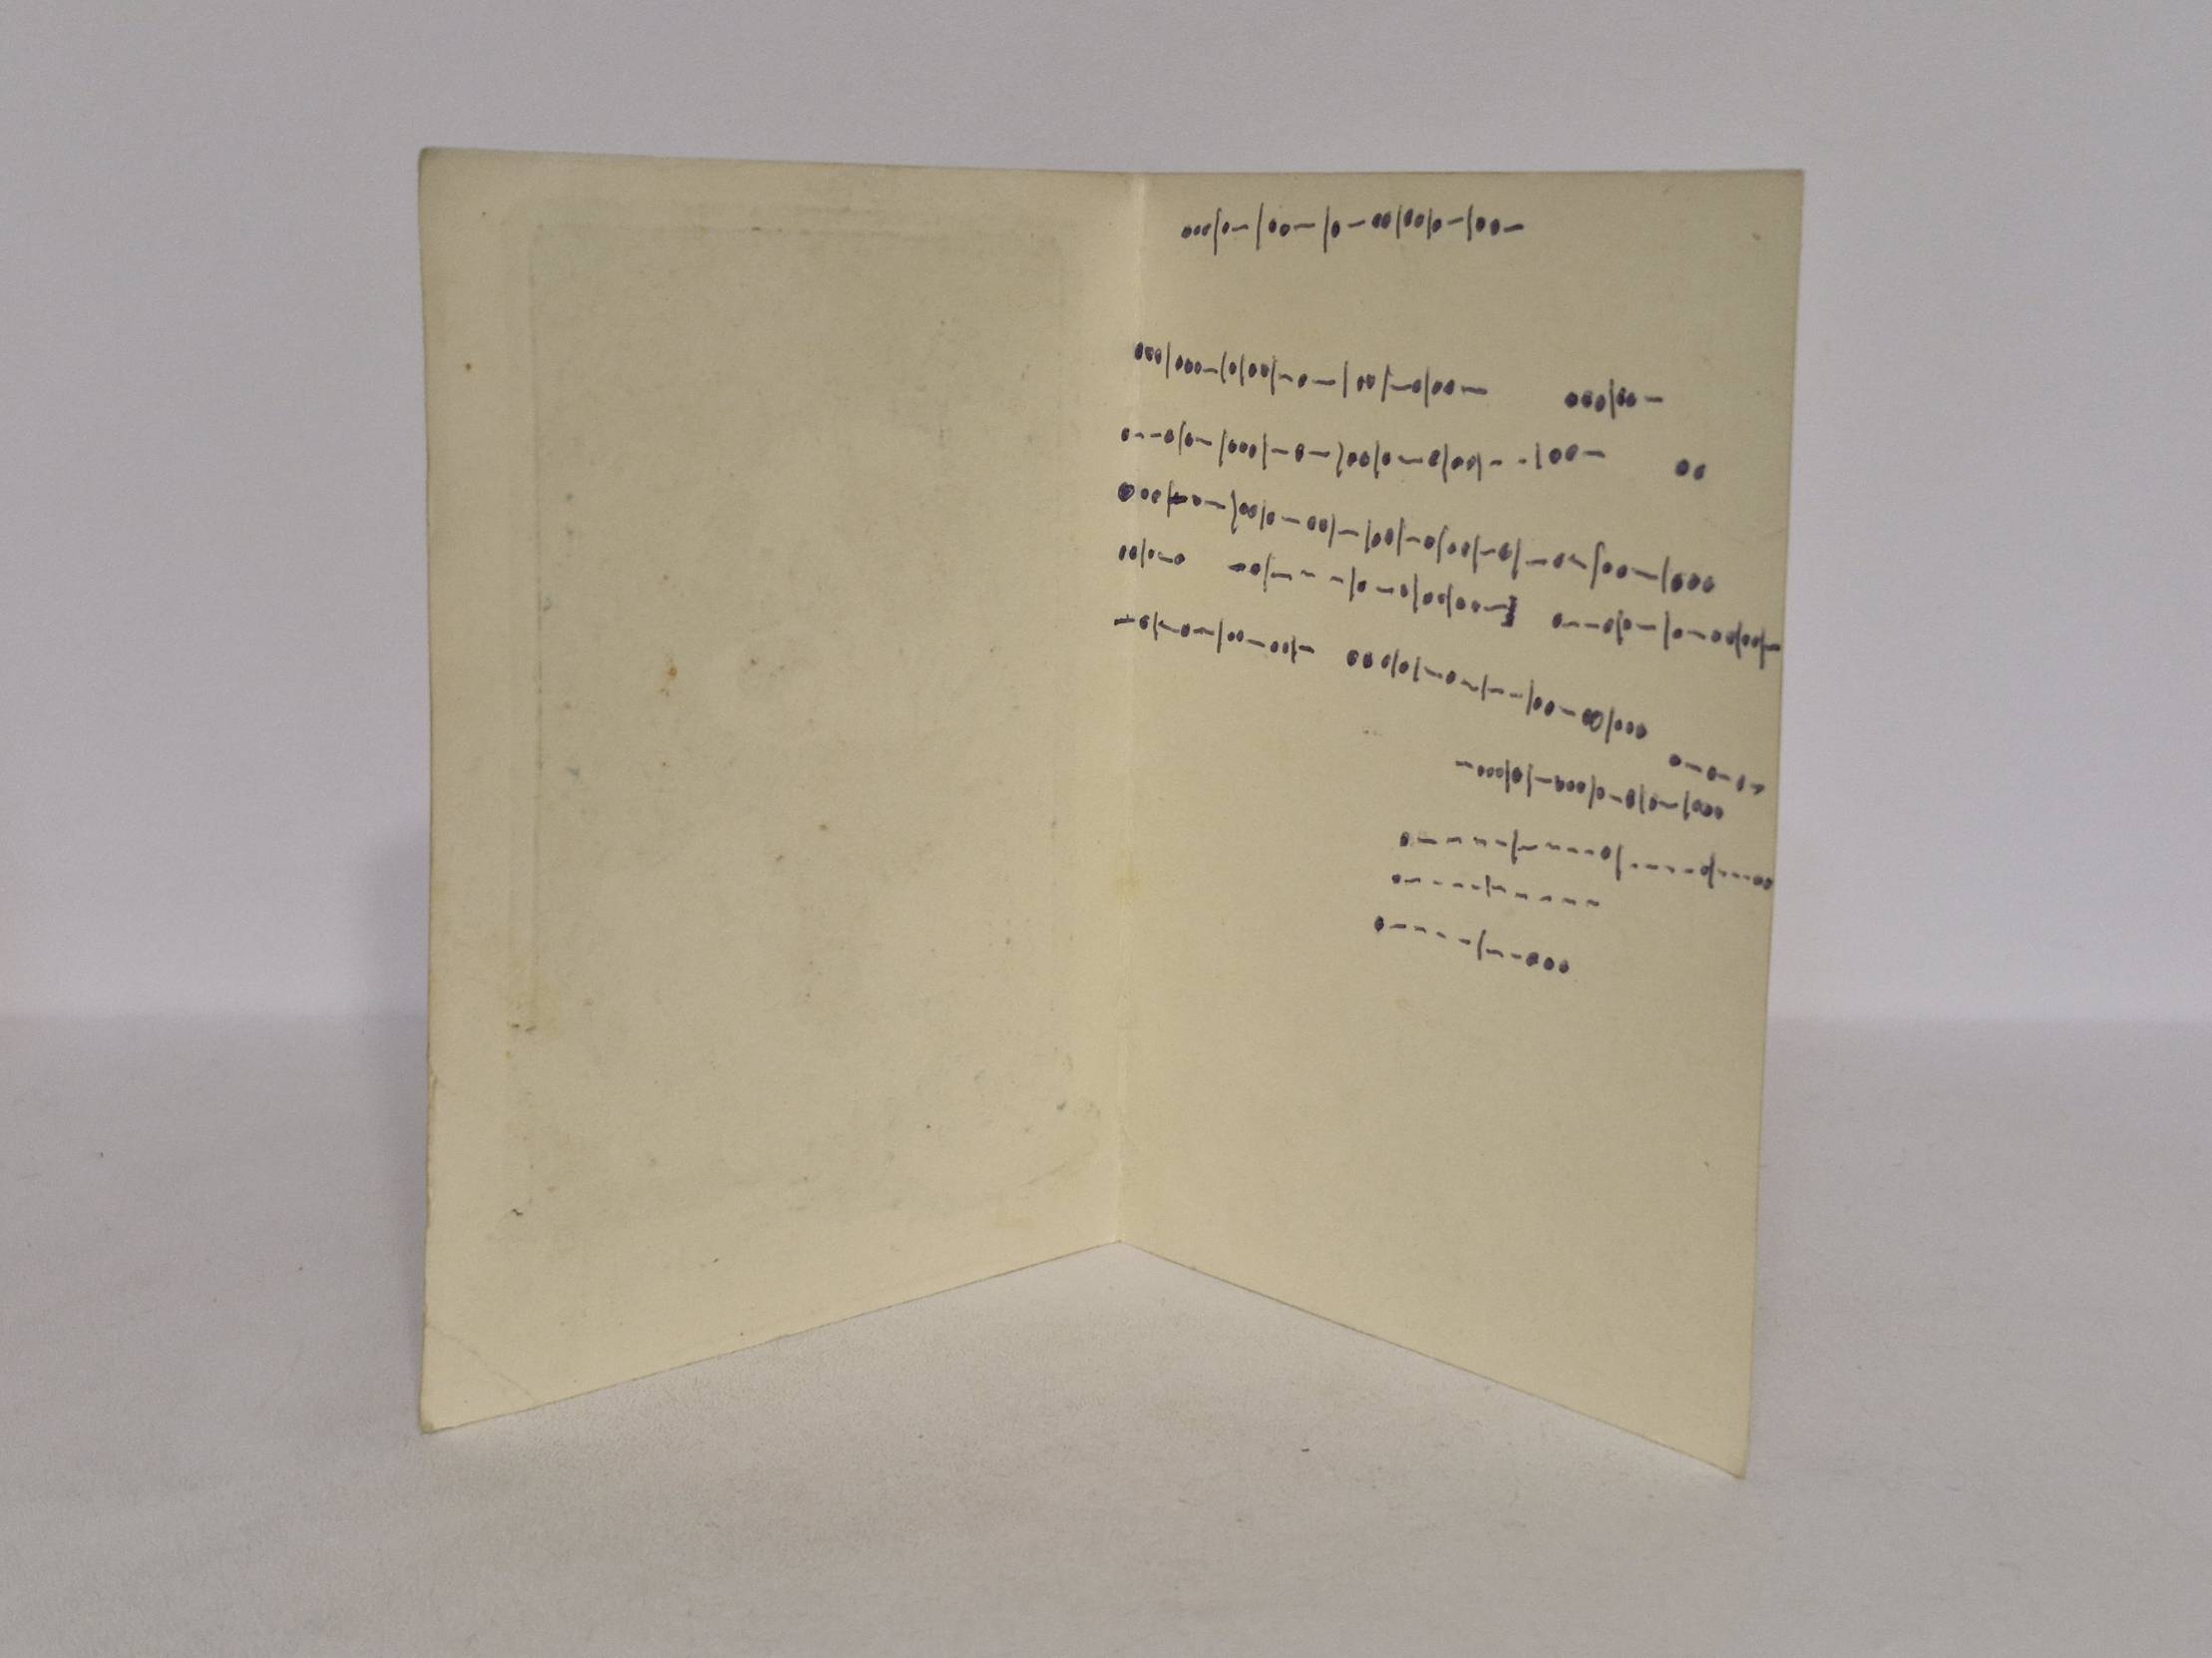 •••|•–|••–|•–••|••|•–|••–
•••|•••–|•|••|–•–|••|–•|••– •••|••–
•––•|•–|•••|–•–|••|•–•|••|––|••– ••
•••|–•–|••|•–••|–|••|–•|••|–•|–•–|••–|•••
••|•–• –•|–––|•–•|••|••– •––•|•–|•–••|••|–
–•|–•–|••–••|–|•• •••|•|–•–|––|••–••|•••
•–•–•–
–•••|•|–•••|•–•|•–|•••
•––––|––––•|––––•|–––••
•––––|–––––
•––––|––•••